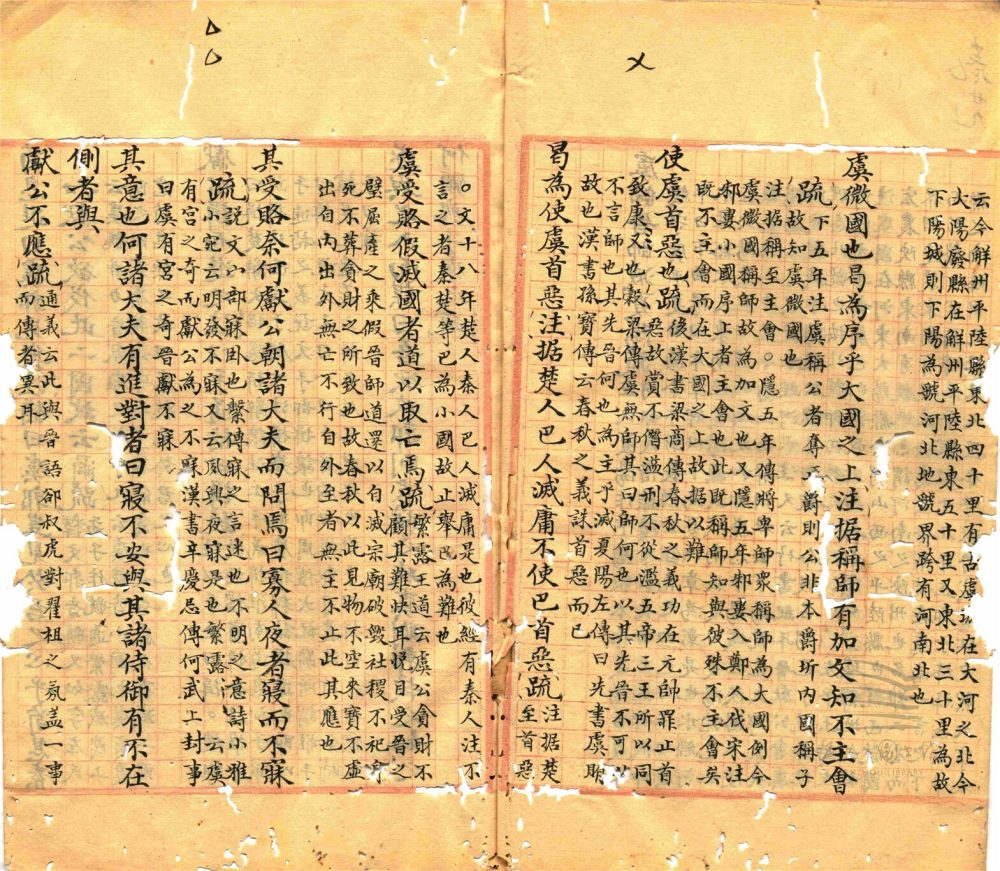 云今解州平陸聯東北四十里有古虞城在大河之北今
大陽廢縣在解州平陸縣東五十里又東北三十里為故
下陽城則下陽為虢河北地虢界跨有河南北也
虞微國也曷為序乎大國之上注据稱師有加文知不主會
疏下五年注虞稱公者奪正爵則公非本爵圻内國稱子
故知虞微國也
注据稱至主會。隱五年傳將卑師眾稱師為大國例今
虞微國稱師故為加文也又隱五年邾婁人鄭人伐宋注
邾婁小國序上者主會也此既稱師知與彼殊不主會矣
既不主會而在大國之上故据以難
使虞首惡也疏後漢書梁商傳春秋之義功在元帥罪止首
惡故賞不僭溢刑不從濫五帝三王所以同
致康乂也穀梁傳虞無師其曰師何也以其先晉不可以
不言師也其先晉何也為主乎滅夏陽左傳曰先書虞賄
故也漢書孫寶傳云春秋之義誅首惡而已
曷為使虞首惡注据楚人巴人滅庸不使巴首惡疏注据楚
至首惡
。文十八年楚人秦人巴人滅庸是也彼經有秦人注不
言之者秦楚等巴為小國故止舉巴為難也
虞受賂假滅國者道以取亡焉疏繁露王道云虞公貪財不
顧其難快耳悅目受晉之
璧屈產之乘假晉師道還以自滅宗廟破毀社稷不祀身
死不葬貪財之所致也故春秋以此見物不空來寶不虛
出自内出外無亡不行自外至者無主不止此其應也
其受賂奈何獻公朝諸大夫而問焉曰寡人夜者寢而不寐
疏說文㝱部寐卧也繫傳寐之言迷也不明之意詩小雅
小宛云明發不寐又云夙興夜寐是也繁露滅國云虞
有宮之奇而獻公為之不寐漢書辛慶忌傳何武上封事
曰虞有宮之奇晉獻不寐
其意也何諸大夫有進對者曰寢不安與其諸侍御有不在
側者與
獻公不應疏通義云此與晉語郤叔虎對翟柤之氛蓋一事
而傳者異耳